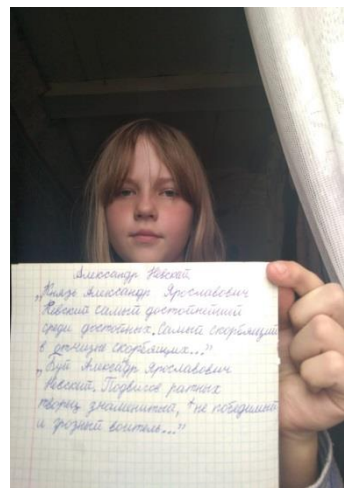 Александр Невский
„Князь Александр Ярославович
Невский самый достойнейший
среди достойных. Самый скорбящий
в отчизне скорбящих..."
„Буй Александр Ярославович
Невский. Подвигов ратных
творец знаменитый, не победимый
и грозный воитель..."